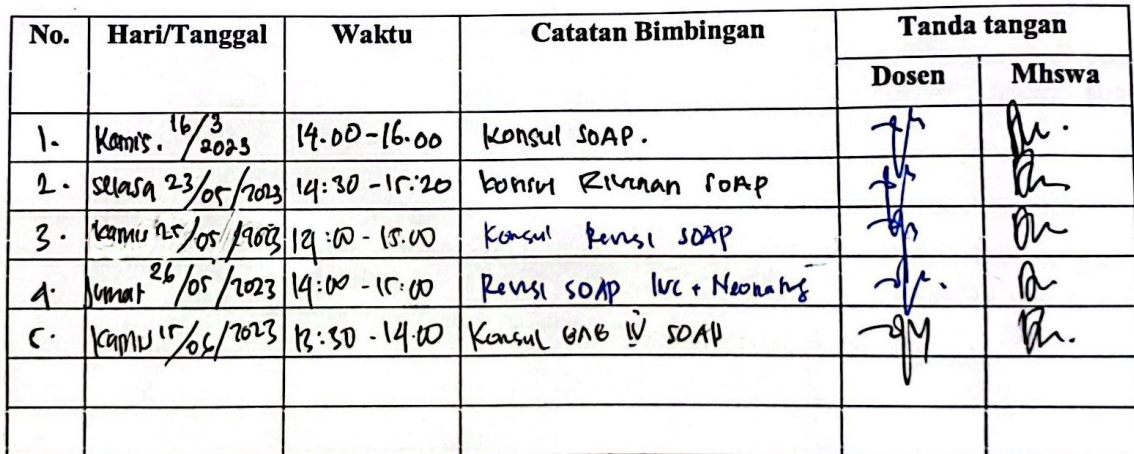 No. Hari/Tanggal Waktu Catatan Bimbingan Tanda tangan
Dosen Mhswa
1. Kamis. 16/3 2023 14.00-16.00 Konsul SOAP.
2. Selasa 23/05/2023 14:30-15:20 SOAP
3. Kamis 25/05/2023 14:00-15.00 Konsul Revisi SOAP
4. Jumat 26/05/2023 14:00-15:00 Revisi SOAP + Neonatus
5. Kamis 15/06/2023 13:30-14.00 Konsul BAB IV SOAP